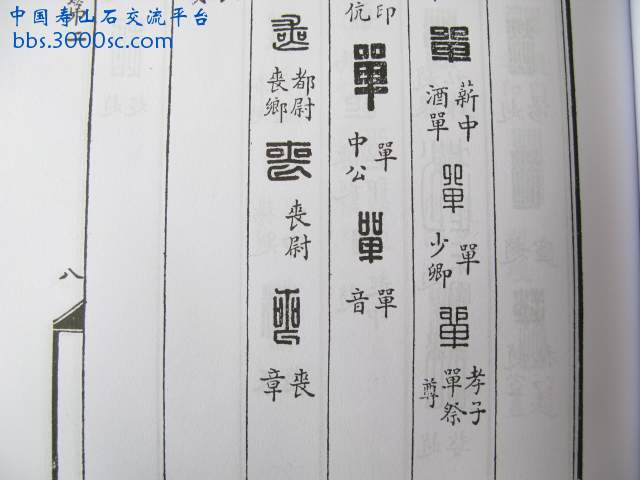 中国寿山石交流平台
bbs.3000sc.com
單
薪中
酒單
單
單
少卿
單
孝子
單祭
尊
印
伉
單
單
中公
單
單
音
喪
都尉
喪鄉
喪
喪尉
喪
喪
章
八